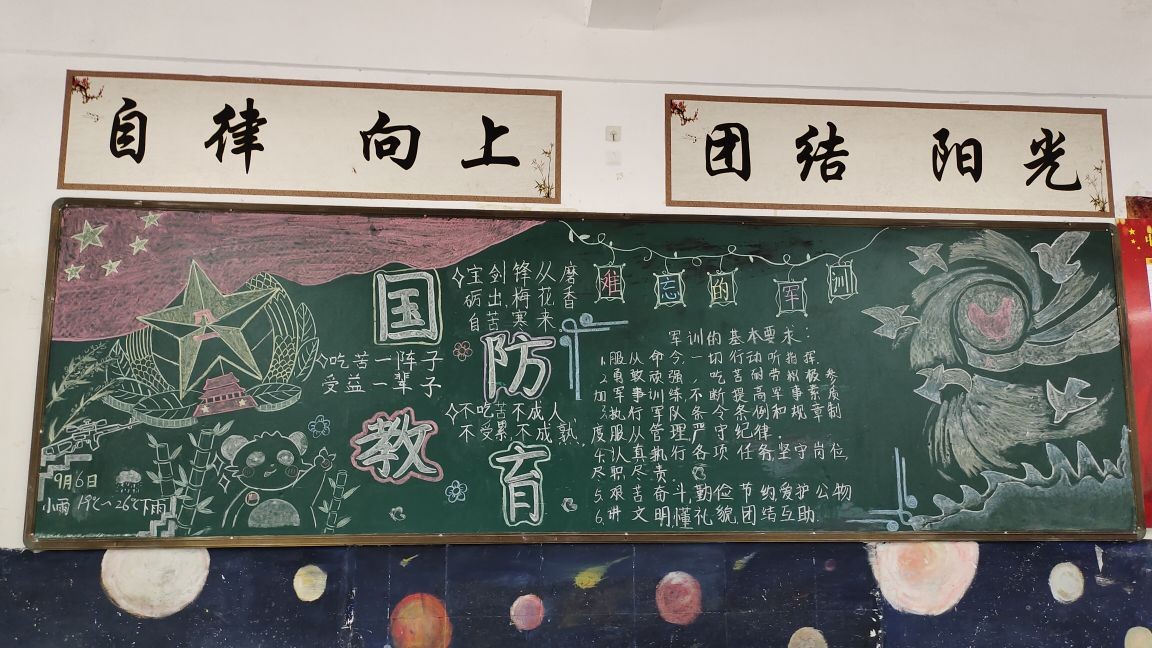 自律 向上
团结 阳光
国防教育
宝剑锋从磨
砺出,梅花香
自苦寒来
吃苦一阵子
受益一辈子
不吃苦不成人
不受累不成熟
9月6日
小雨 19℃~26℃下雨
难忘的军训
军训的基本要求:
1.服从命令,一切行动听指挥
2.勇敢顽强,吃苦耐劳积极参
加军事训练不断提高军事素质
3.执行军队条令条例和规章制
度服从管理严守纪律。
4.认真执行各项任务坚守岗位,
尽职尽责
5.艰苦奋斗勤俭节约爱护公物
6.讲文明懂礼貌,团结互助.